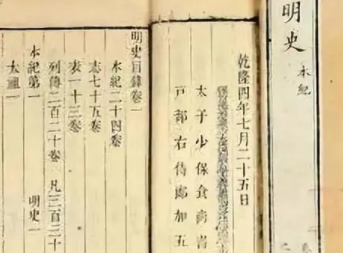 明史
本紀
乾隆四年七月二十五日
太子少保食尚書
戶部右侍郎加五
明史目錄卷一
本紀二十四卷
志七十五卷
表一十三卷
列傳二百二十卷 凡三百三十
本紀第一 明史一
太祖一